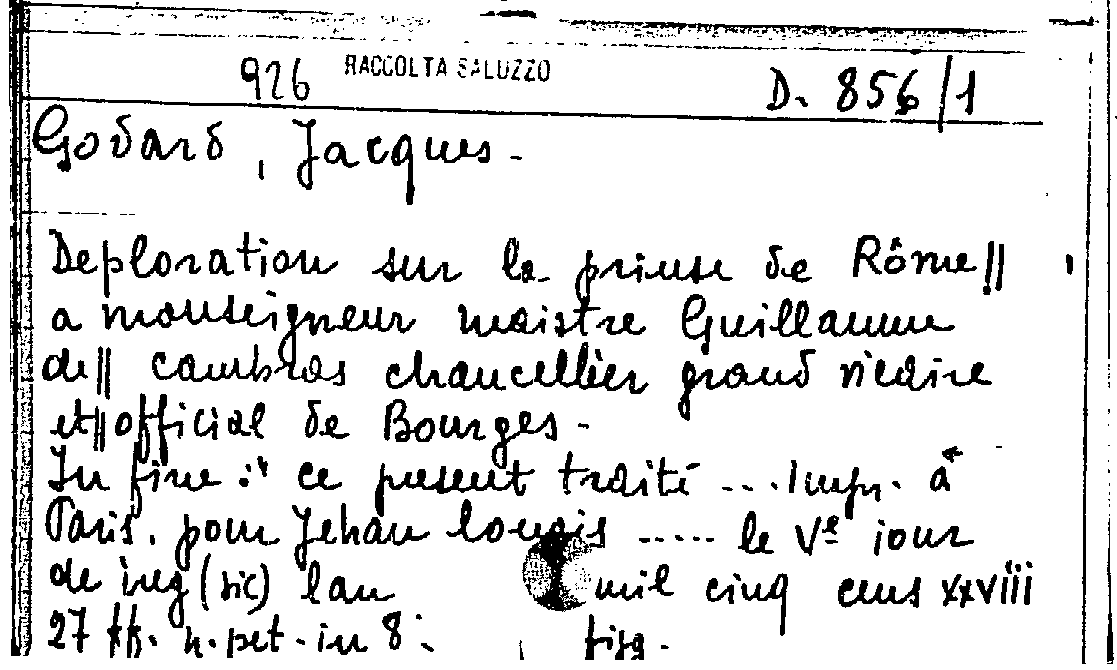 926 RACCOLTA SALUZZO D. 856/1
Godard, Jacques.
Deploration sur la prinse de Rôme ||
a monseigneur maistre Guillaume
de || cambras chancellier grand vicaire
et || official de Bourges.
In fine: "ce present traité .... Impr. à
Paris. pour Jehan longis ..... le Ve iour
de (sic) lan mil cinq cens xxviii
27 ff. n. pet. in 8°.